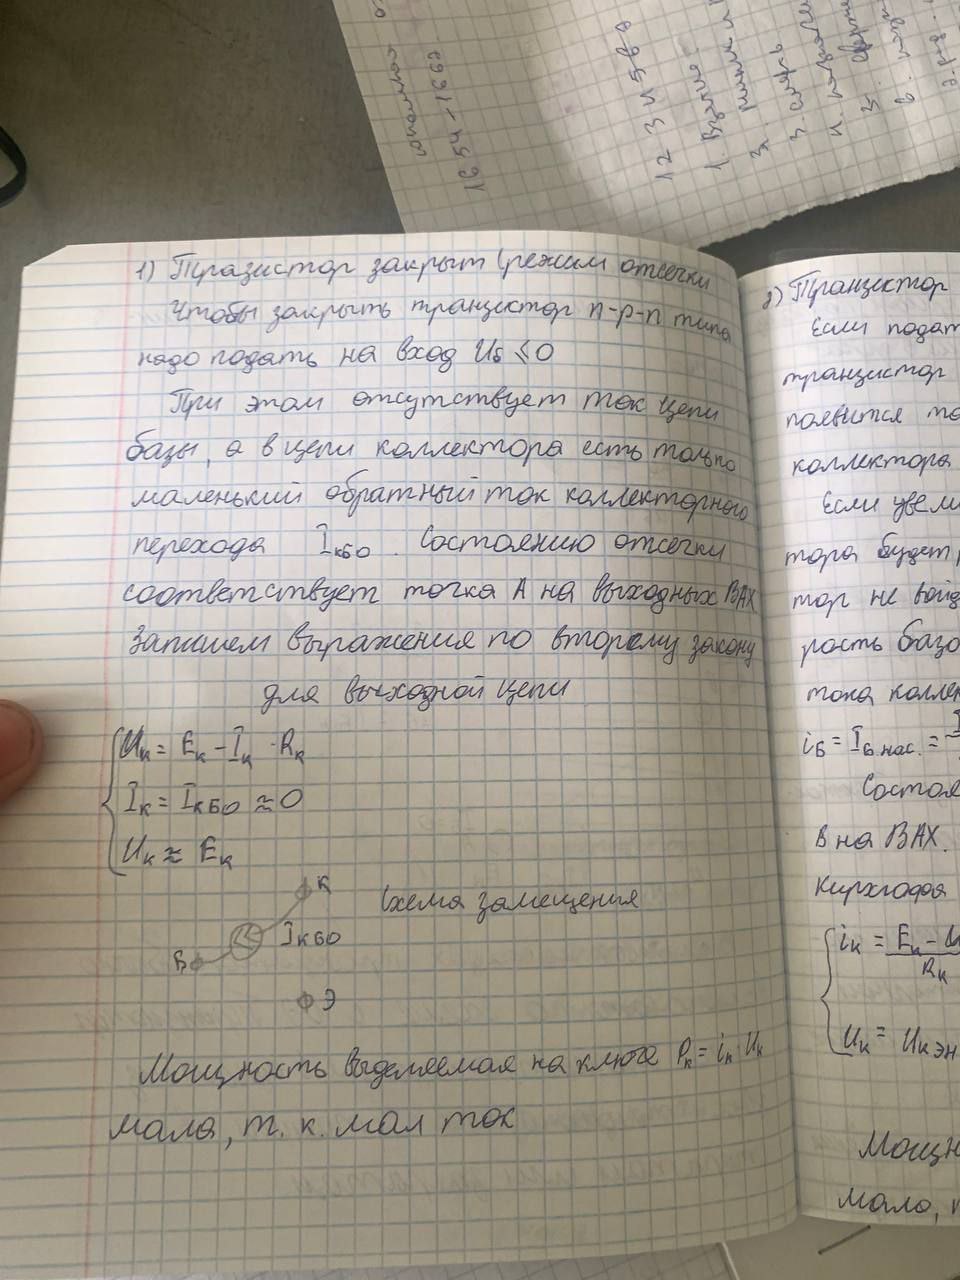 1654-1662
1 2 3 4 5 6 7
1) Тразистор закрыт (режим отсечки
Чтобы закрыть транзистор n-p-n типа
надо подать на вход Uб ≤ 0
При этом отсутствует ток цепи
базы, а в цепи коллектора есть только
маленький обратный ток коллекторного
перехода Iкбо. Состоянию отсечки
соответствует точка А на выходных ВАХ
Запишем выражения по второму закону
для выходной цепи
Uк = Eк - Iк · Rк
Iк = Iкбо ≈ 0
Uк ≈ Eк
К
Схема замещения
Iкбо
Б
Э
Мощность выделяемая на ключе Pк = iк · Uк
мала, т. к. мал ток
2) Транзистор
Если подат
транзистор
появится то
коллектора
Если увели
тора будет
тор не войд
рость базо
тока коллек
iб = Iб нас. =
Состоя
В на ВАХ.
Кирхгофа
iк = Eк - U
Rк
Uк = Uк эн
Мощн
мала,